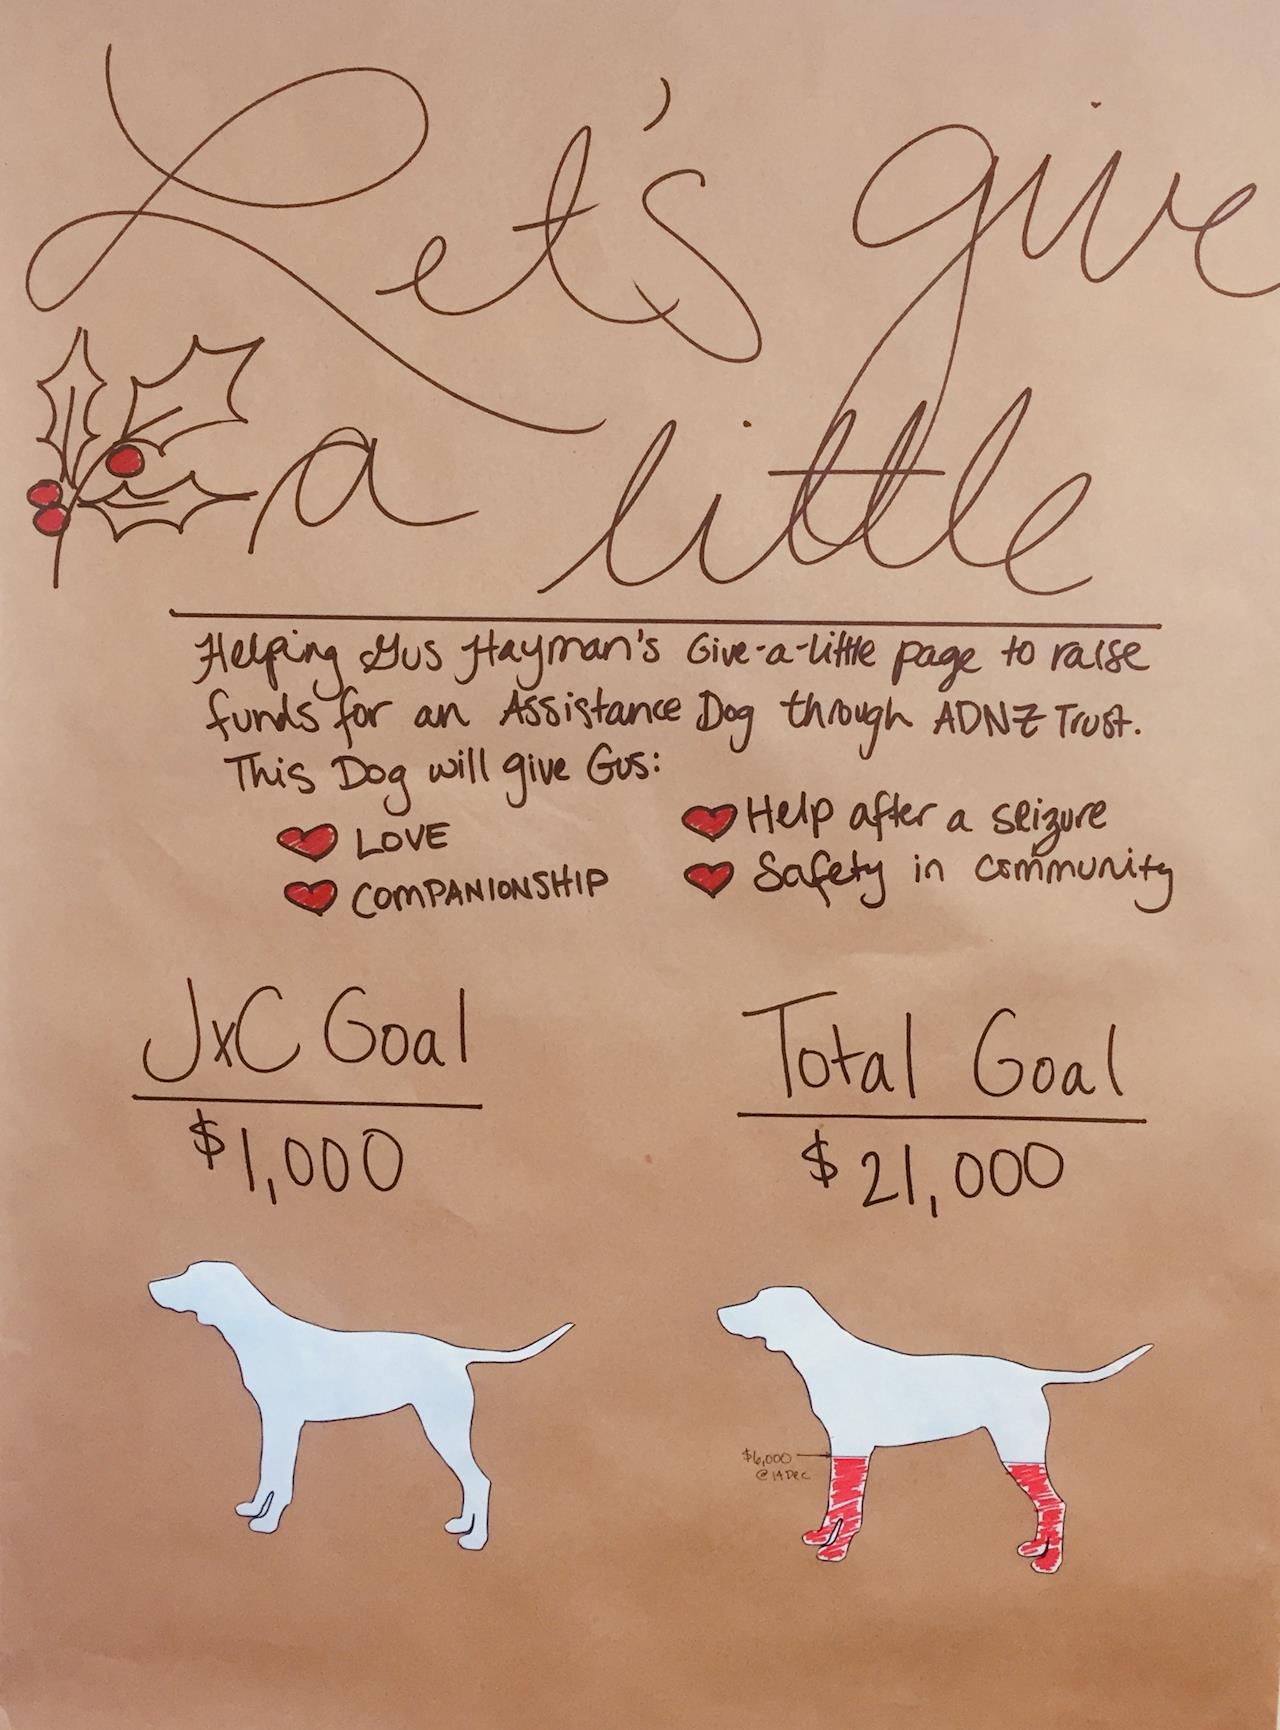 Let's give
a little
Helping Gus Hayman's Give-a-little page to raise
funds for an Assistance Dog through ADNZ Trust.
This Dog will give Gus:
LOVE
COMPANIONSHIP
Help after a seizure
Safety in community
JxC Goal
$1,000
Total Goal
$21,000
$6,000
@ 14 Dec